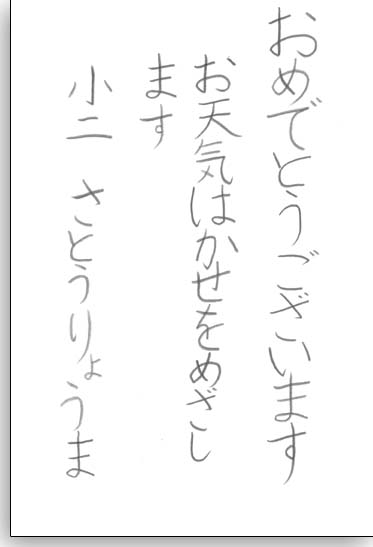 おめでとうございます
お天気はかせをめざし
ます
小二 さとうりょうま